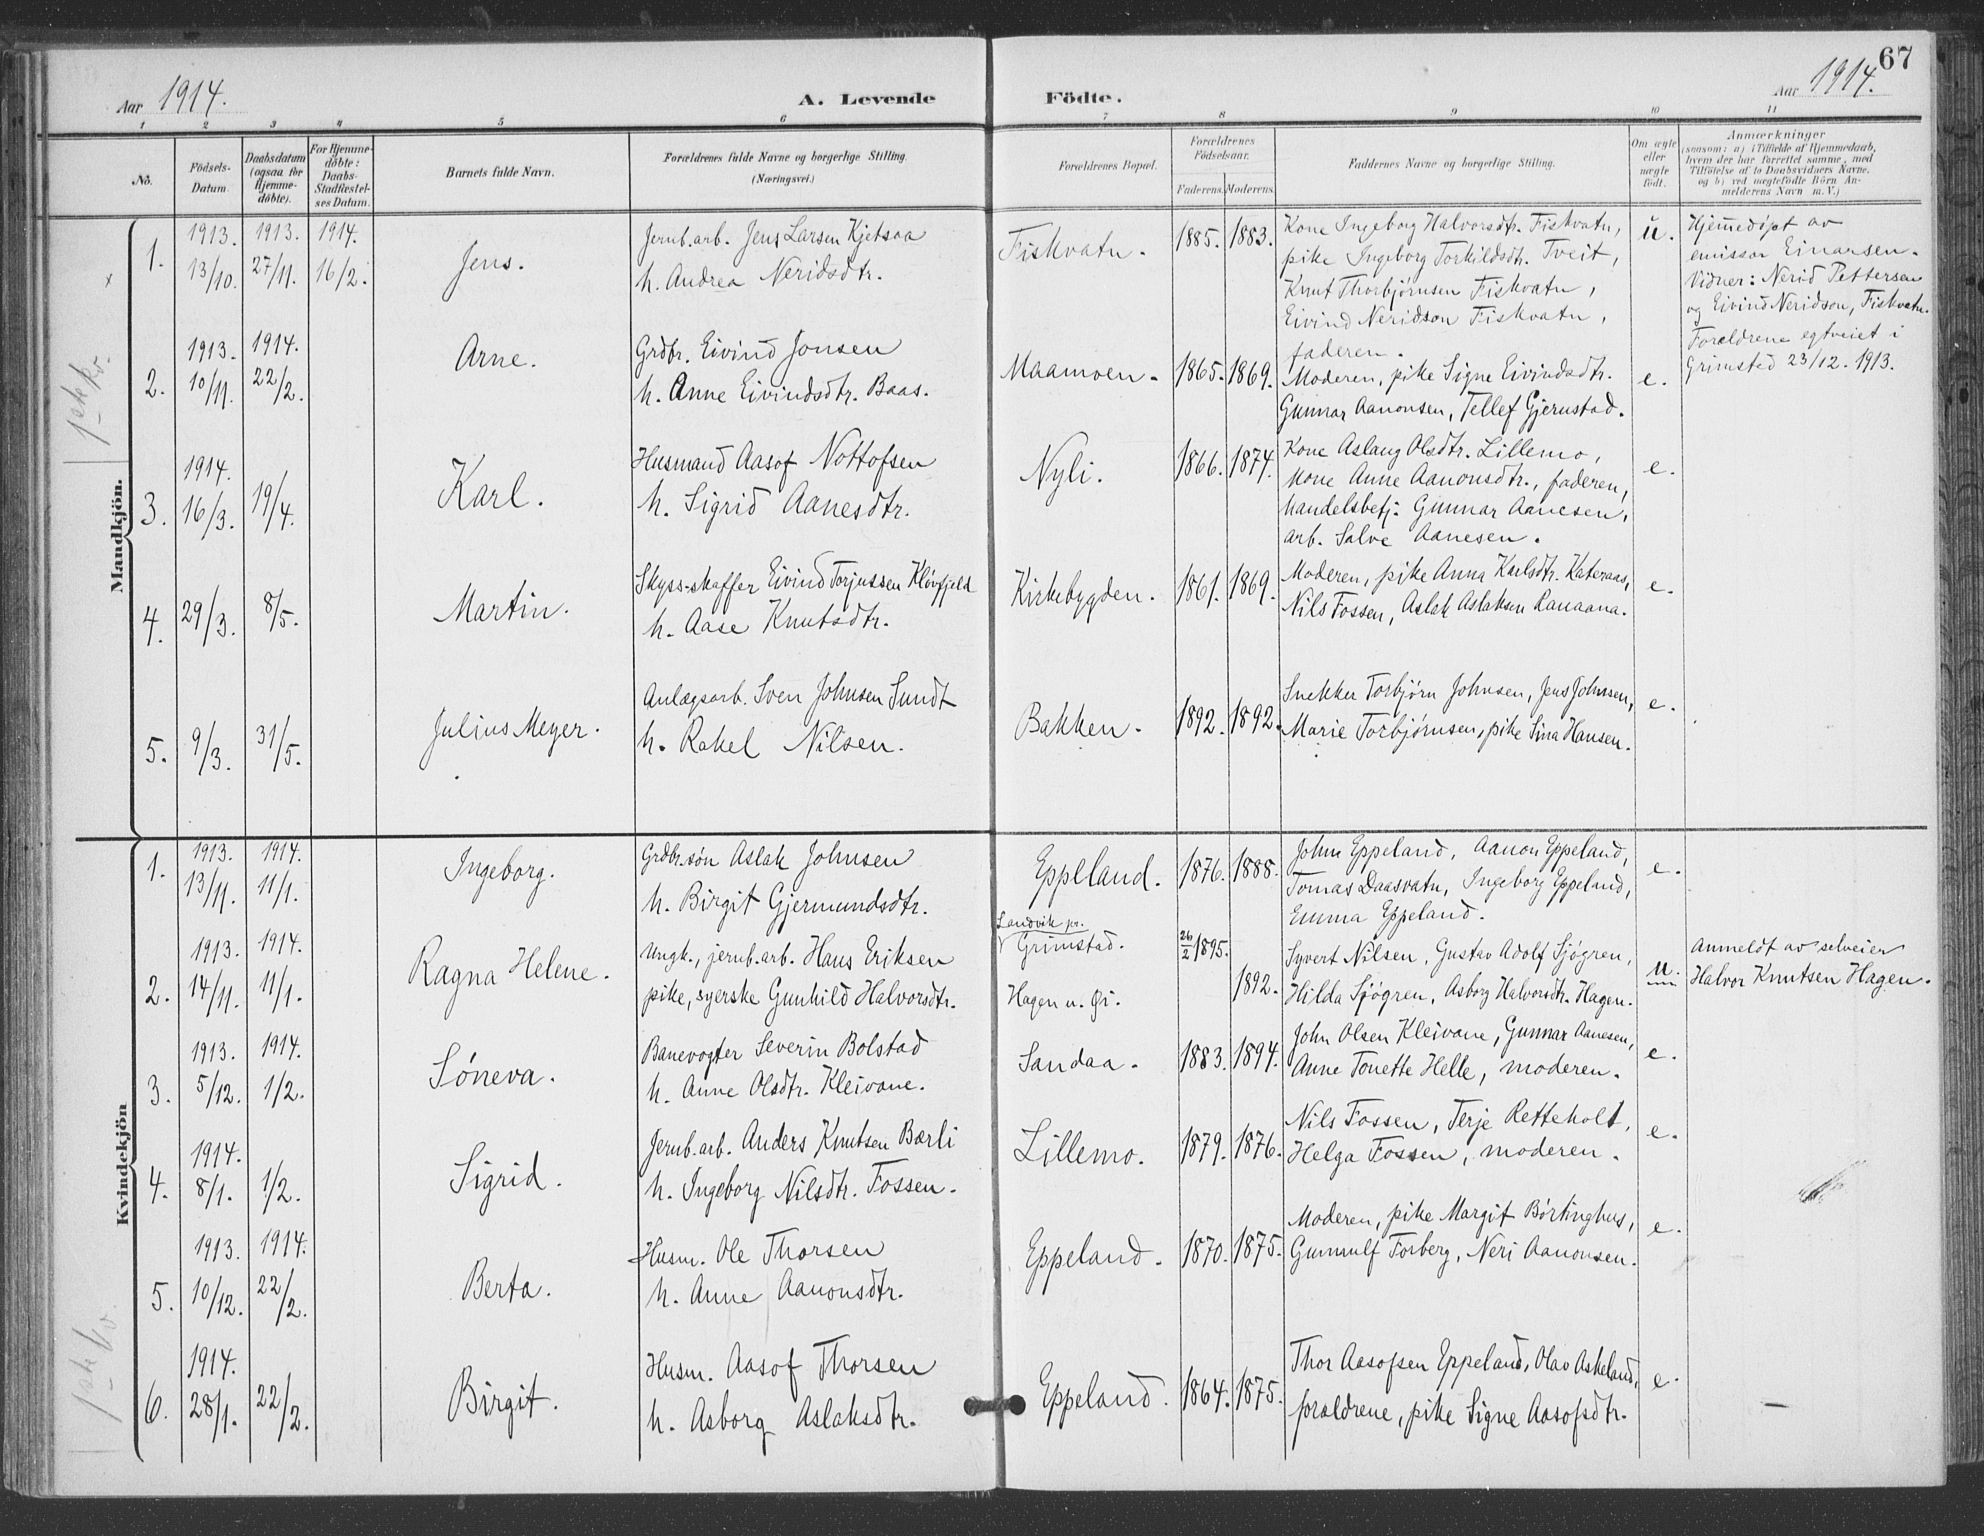 67
Aar 1914.
A. Levende
Födte.
Aar 1914.
1 2 3 4 5 6 7 8 9 10 11
No.
Födsels-
Datum.
Daabsdatum
(ogsaa for
Hjemme-
döbte).
For Hjemme-
döbte:
Daabs-
Stadfæstel-
ses Datum.
Barnets fulde Navn.
Forældrenes fulde Navne og borgerlige Stilling.
(Næringsvei.)
Forældrenes Bopæl.
Forældrenes
Födselsaar.
Faderens. Moderens.
Faddernes Navne og borgerlige Stilling.
Om ægte
eller
uægte
födt.
Anmærkninger
(saasom: a) i Tilfælde af Hjemmedaab,
hvem der har forrettet samme, med
Tilföielse af to Daabsvidners Navne,
og b) ved uægtefödte Börn An-
melderens Navn m. V.)
Mandkjön.
1.
1913.
13/10.
1913.
27/11.
1914.
16/2.
Jens.
Jernb.arb. Jens Larsen Kjetsaa
h. Andrea Neridsdtr.
Fiskvatn.
1885. 1883.
Kone Ingeborg Halvorsdtr. Fiskvatn,
pike Ingeborg Torkildsdtr. Tveit,
Knut Thorbjørnsen Fiskvatn,
Eivind Neridson Fiskvatn,
faderen.
u.
Hjemmedøpt av
emissær Einarsen.
Vidner: Nerid Pettersen
og Eivind Neridson, Fiskvatn.
Forældrene egtveiet i
Grimsted 23/12. 1913.
2.
1913.
10/11.
1914.
22/2.
Arne.
Grdbr. Eivind Jonsen
h. Anne Eivindsdtr. Baas.
Maamoen.
1865. 1869.
Moderen, pike Signe Eivindsdtr.
Gunnar Aanonsen, Tellef Gjerustad.
e.
3.
1914.
16/3.
19/4.
Karl.
Husmand Aasof Nottofsen
h. Sigrid Aanesdtr.
Nyli.
1866. 1874.
Kone Aslaug Olsdtr. Lillemo,
kone Anne Aanonsdtr., faderen,
handelsbetj. Gunnar Aanesen,
arb. Salve Aanesen.
e.
4.
29/3.
8/5.
Martin.
Skyss-skaffer Eivind Torjussen Kløvfjeld
h. Aase Knutsdtr.
Kirkebygden.
1861. 1869.
Moderen, pike Anna Karlsdtr. Kateraas,
Nils Fossen, Aslak Aslaksen Ranaana.
e.
5.
9/3.
31/5.
Julius Meyer.
Anlægsarb. Sven Johnsen Sundt
h. Rakel Nilsen.
Bakken.
1892. 1892.
Snekker Torbjørn Johnsen, Jens Johnsen,
Marie Torbjørnsen, pike Sina Hansen.
e.
Kvindekjön
1.
1913.
13/11.
1914.
11/1.
Ingeborg.
Grdbr.søn Aslak Johnsen
h. Birgit Gjermundsdtr.
Eppeland.
1876. 1888.
John Eppeland, Aanon Eppeland,
Tomas Daasvatn, Ingeborg Eppeland,
Emma Eppeland.
e.
2.
1913.
14/11.
1914.
11/1.
Ragna Helene.
Ungk., jernb.arb. Hans Eriksen
pike, syerske Gunhild Halvorsdtr.
Landvik pr.
Grimstad.
Hagen u. Øi.
26/2 1895.
1892.
Syvert Nilsen, Gustav Adolf Sjøgren,
Hilda Sjøgren, Asborg Halvorsdtr. Hagen.
u.
Anmeldt av selveier
Halvor Knutsen Hagen.
3.
1913.
5/12.
1914.
1/2.
Søneva.
Banevogter Severin Bolstad
h. Anne Olsdtr. Kleivane.
Sandaa.
1883. 1894.
John Olsen Kleivane, Gunnar Aanesen,
Anne Tonette Helle, moderen.
e.
4.
1914.
8/1.
1/2.
Sigrid.
Jernb.arb. Anders Knutsen Bærli
h. Ingeborg Nilsdtr. Fossen.
Lillemo.
1879. 1876.
Nils Fossen, Terje Retteholt,
Helga Fossen, moderen.
e.
5.
1913.
10/12.
1914.
22/2.
Berta.
Husm. Ole Thorsen
h. Anne Aanonsdtr.
Eppeland.
1870. 1875.
Moderen, pike Margit Børtinghus,
Gunnulf Torberg, Neri Aanonsen.
e.
6.
1914.
28/1.
22/2.
Birgit.
Husm. Aasof Thorsen
h. Asborg Aslaksdtr.
Eppeland.
1864. 1875.
Thor Aasofsen Eppeland, Olav Askeland,
forældrene, pike Signe Aasofsdtr.
e.